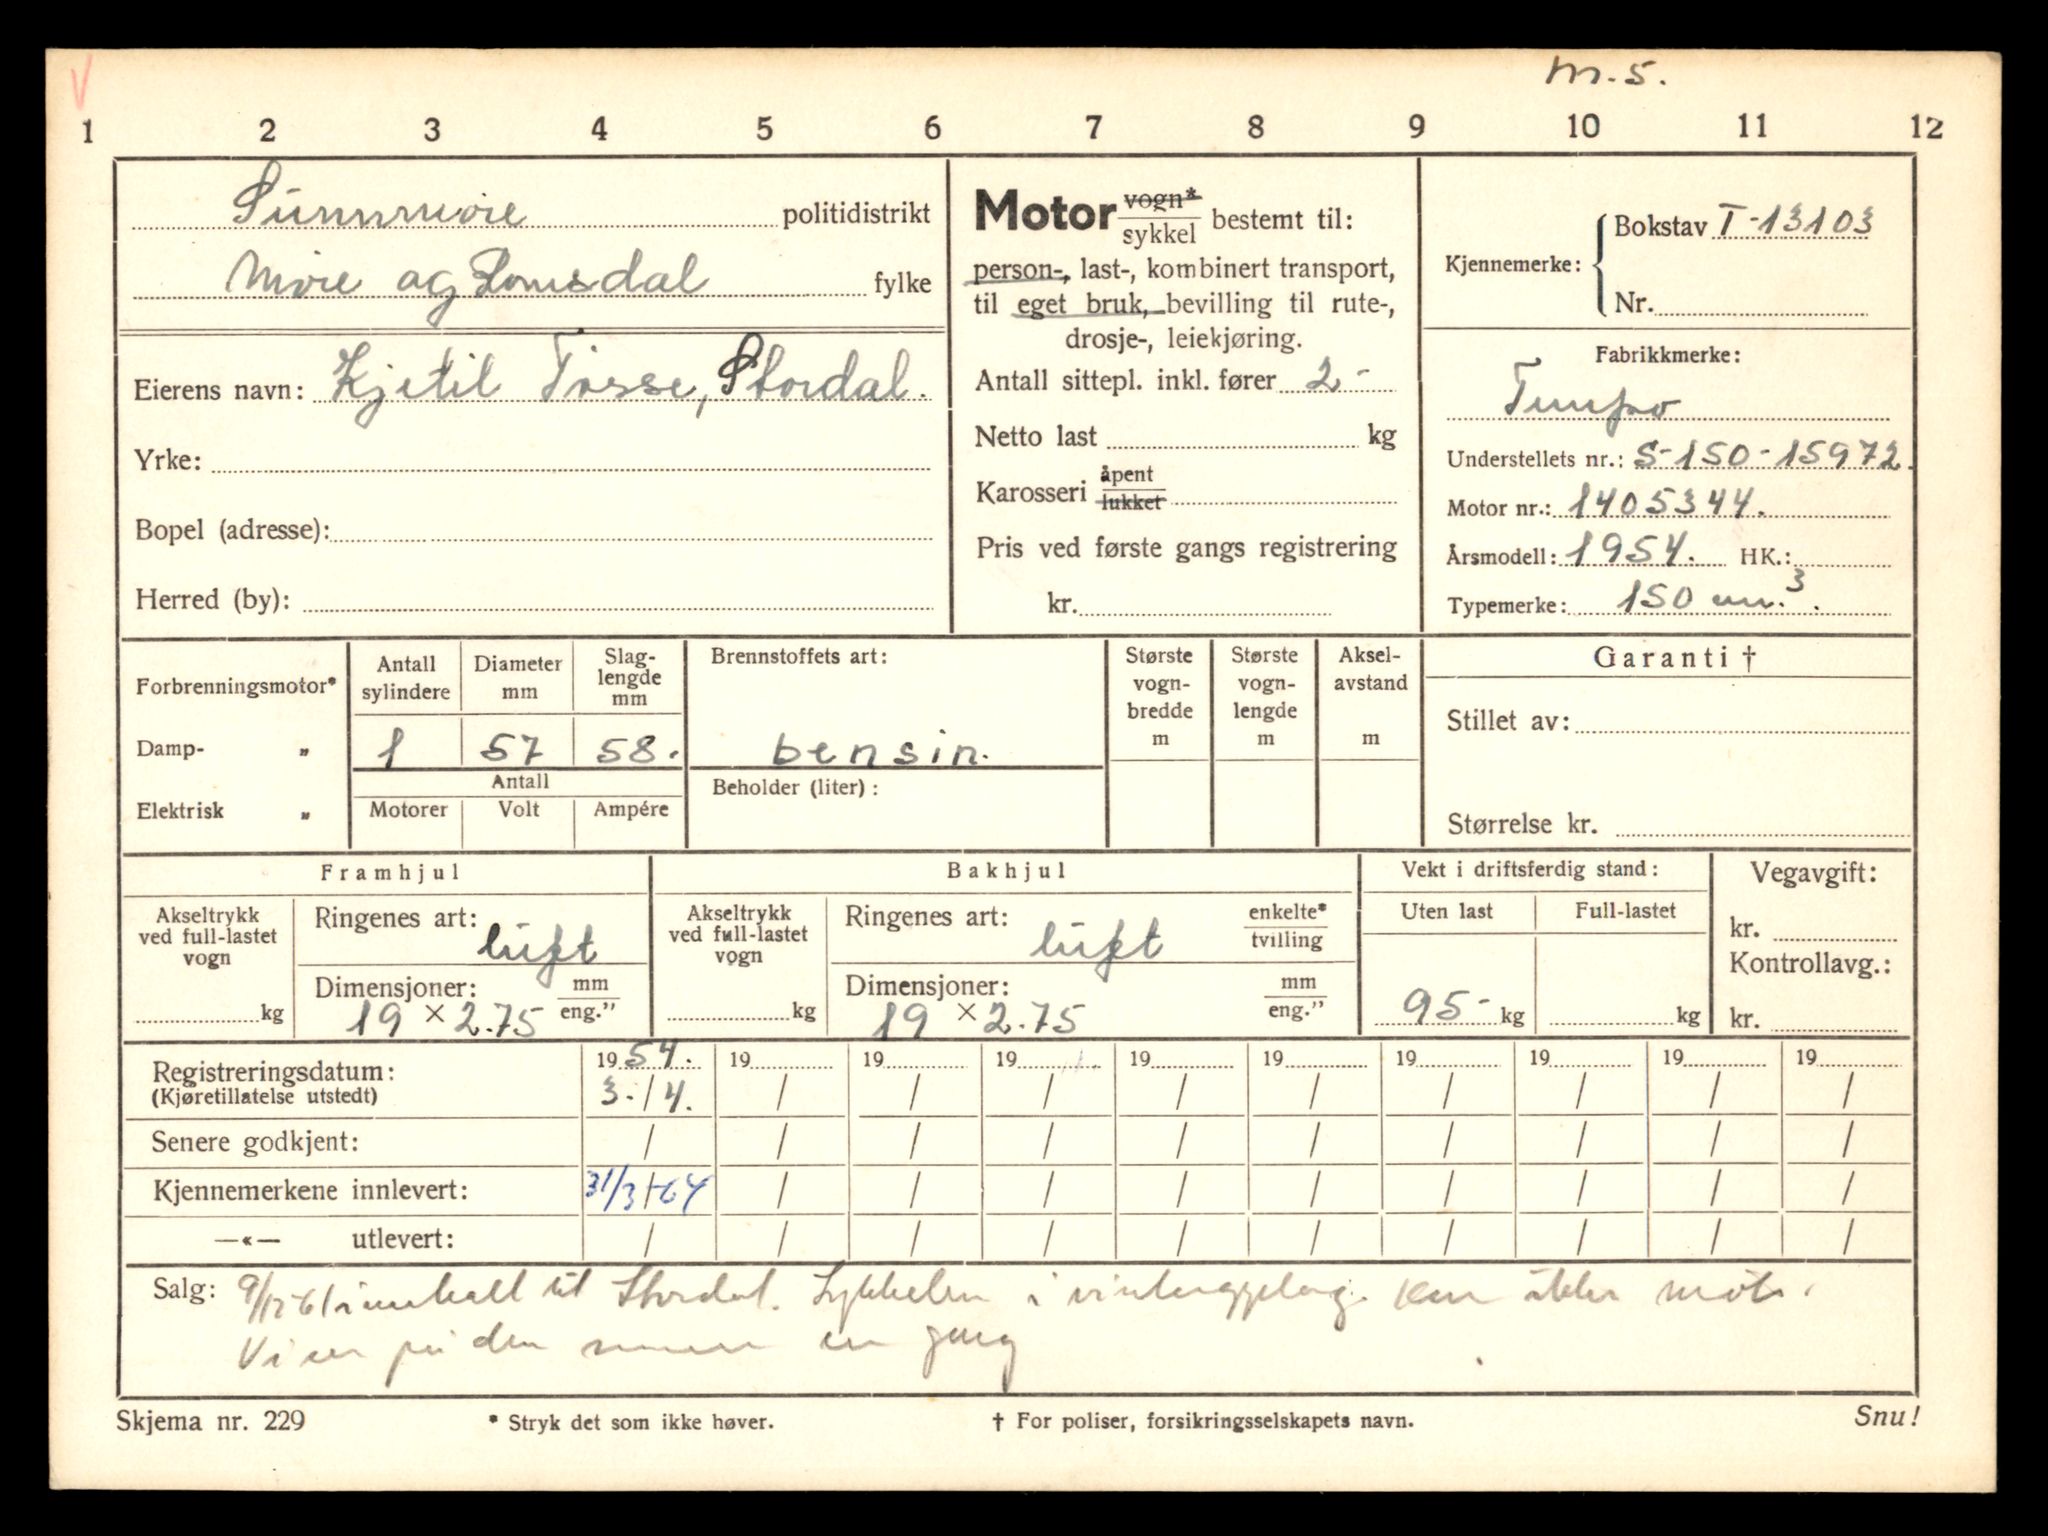 V
m.5.
1 2 3 4 5 6 7 8 9 10 11 12
Sunnmøre politidistrikt
Møre og Romsdal fylke
Eierens navn: Kjetil Tøsse, Stordal.
Yrke:
Bopel (adresse):
Herred (by):
Motor vogn* / sykkel bestemt til:
person-, last-, kombinert transport,
til eget bruk, bevilling til rute-,
drosje-, leiekjøring.
Antall sittepl. inkl. fører 2 -
Netto last kg
Karosseri åpent / lukket
Pris ved første gangs registrering
kr.
Kjennemerke: Bokstav T-13103
Nr.
Fabrikkmerke:
Tempo
Understellets nr.: S-150-15972.
Motor nr.: 1405344.
Årsmodell: 1954. HK.:
Typemerke: 150 cm.3.
Forbrenningsmotor*
Damp- „
Elektrisk „
Antall sylindere
Diameter mm
Slag-
lengde
mm
1 57 58.
Antall
Motorer Volt Ampére
Brennstoffets art:
bensin.
Beholder (liter):
Største
vogn-
bredde
m
Største
vogn-
lengde
m
Aksel-
avstand
m
Garanti †
Stillet av:
Størrelse kr.
Framhjul
Akseltrykk
ved full-lastet
vogn
kg
Ringenes art: luft
Dimensjoner: mm / eng.”
19 × 2.75
Bakhjul
Akseltrykk
ved full-lastet
vogn
kg
Ringenes art: luft enkelte* / tvilling
Dimensjoner: mm / eng.”
19 × 2.75
Vekt i driftsferdig stand:
Uten last Full-lastet
95- kg kg
Vegavgift:
kr.
Kontrollavg.:
kr.
1954. 19 19 19 19 19 19 19 19 19
Registreringsdatum: 3./4. / / / / / / / / /
(Kjøretillatelse utstedt)
Senere godkjent: / / / / / / / / / /
Kjennemerkene innlevert: 31/3-64 / / / / / / / / /
—«— utlevert: / / / / / / / / / /
Salg: 9/12 61 innkalt til Stordal. Sykkelen i vinteropplag. Kan ikke møte.
Vi ser på den en gang
Skjema nr. 229
* Stryk det som ikke høver.
† For poliser, forsikringsselskapets navn.
Snu!